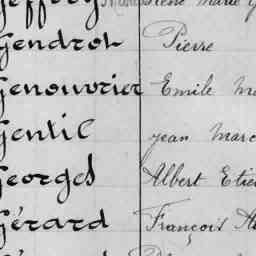 Geffroy René Marie
Gendrot Pierre
Genouvrier Emile
Gentil Jean Marc
Georges Albert Etie
Gérard François